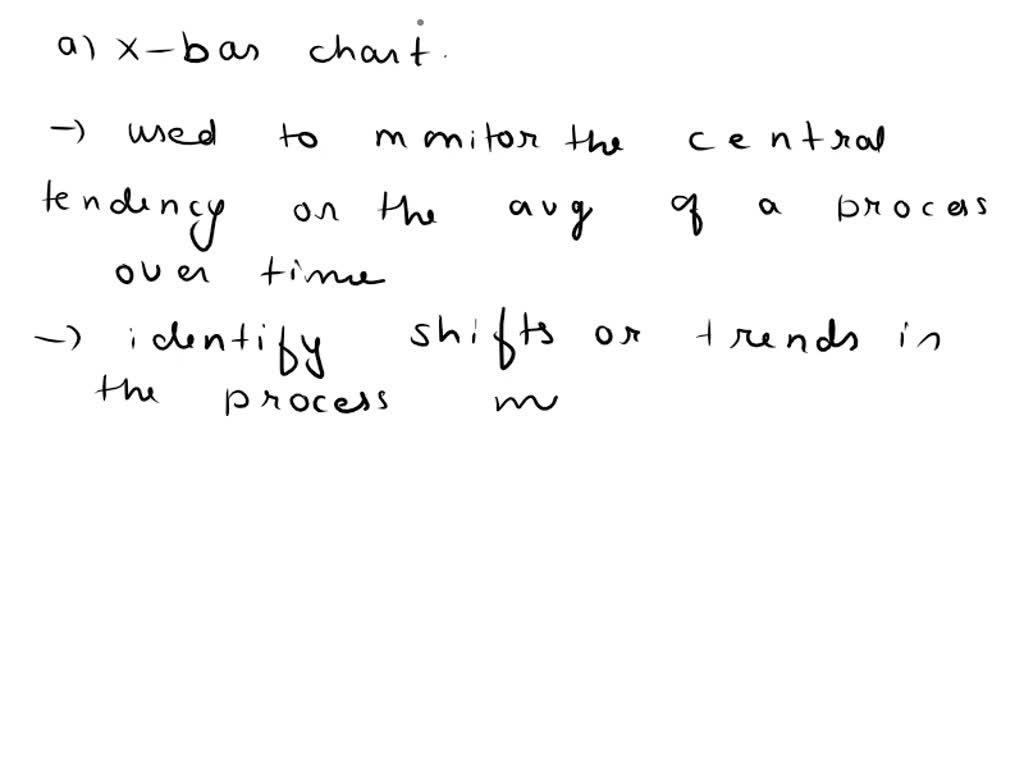 a) x-bar chart.
→ used to monitor the central
tendency or the avg of a process
over time
→ identify shifts or trends in
the process m